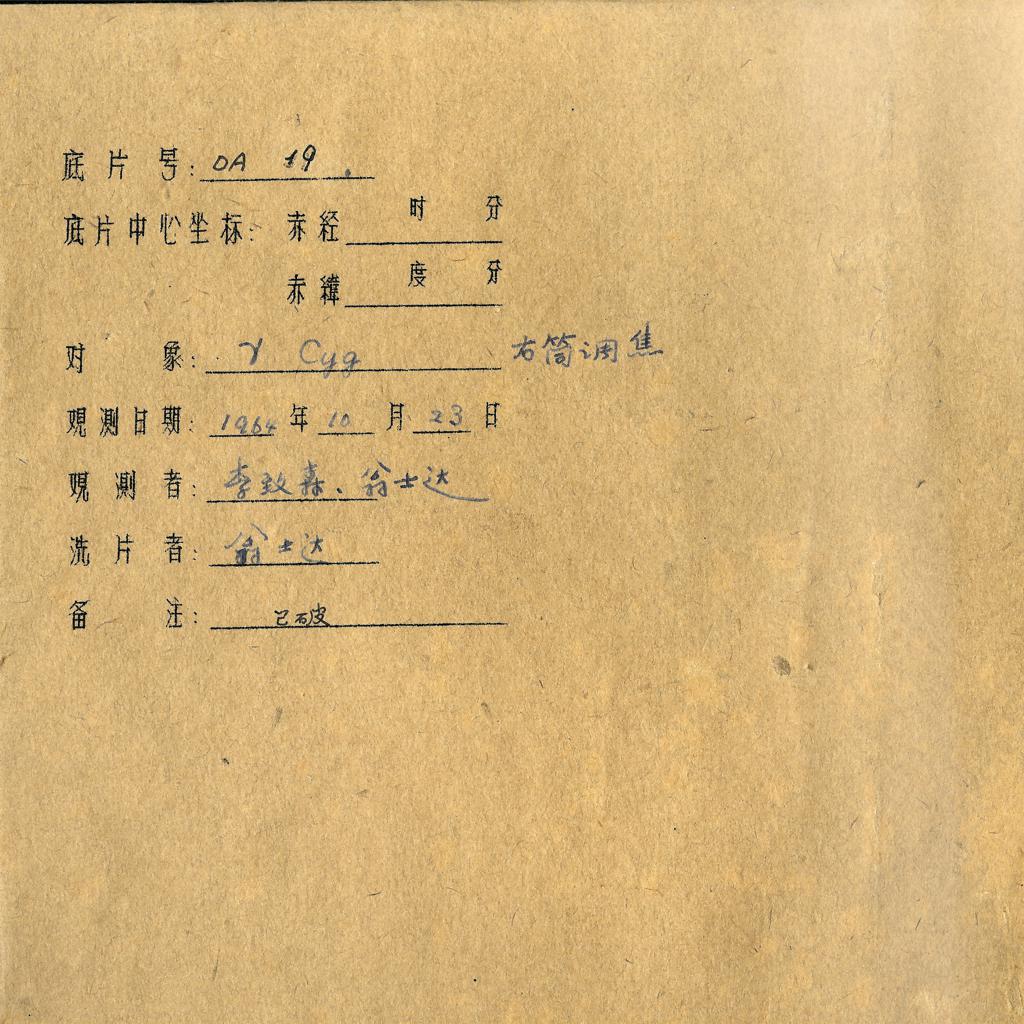 底片号: DA 19.
底片中心坐标: 赤经 时 分
赤緯 度 分
对 象: γ Cyg 右筒调焦
观测日期: 1964 年 10 月 23 日
观测者: 李致森、翁士达
洗片者: 翁士达
备 注: 已破